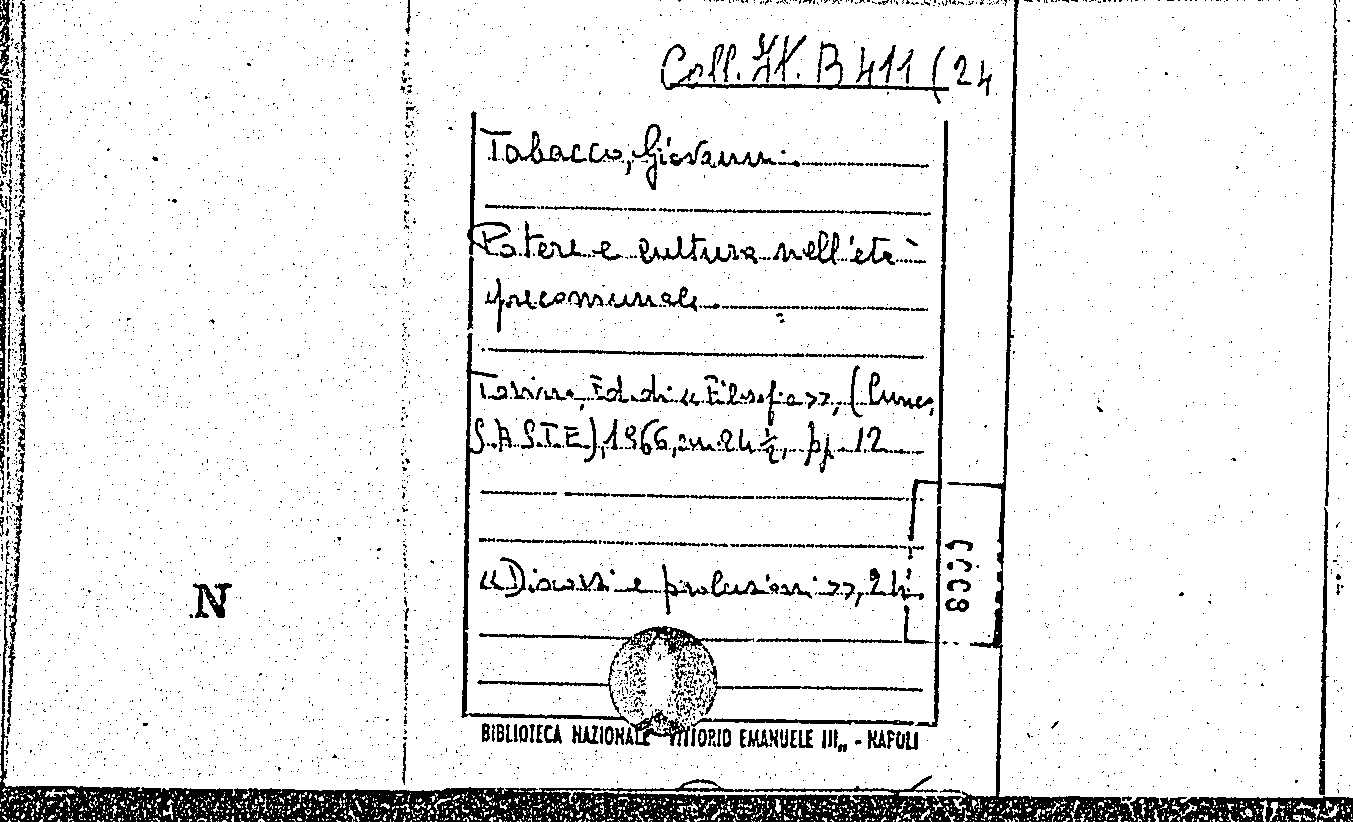 Coll. B 411 (24
Tabacco, Giovanni.
Potere e cultura nell'età
precomunale.
Torino, Ed. di « Filosofia », (Cuneo,
S.A.S.T.E.), 1966, in 24 ½, pp. 12
« Discorsi e prolusioni », 24.
N
BIBLIOTECA NAZIONALE "VITTORIO EMANUELE III„ - NAPOLI